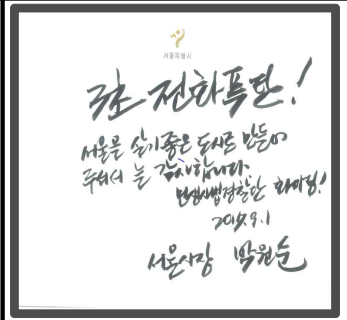 서울특별시
3초 전화폭탄!
서울을 살기좋은 도시로 만들어
주셔서 늘 감사합니다.
민생사법경찰단 화이팅!
2017.9.1
서울시장 박원순